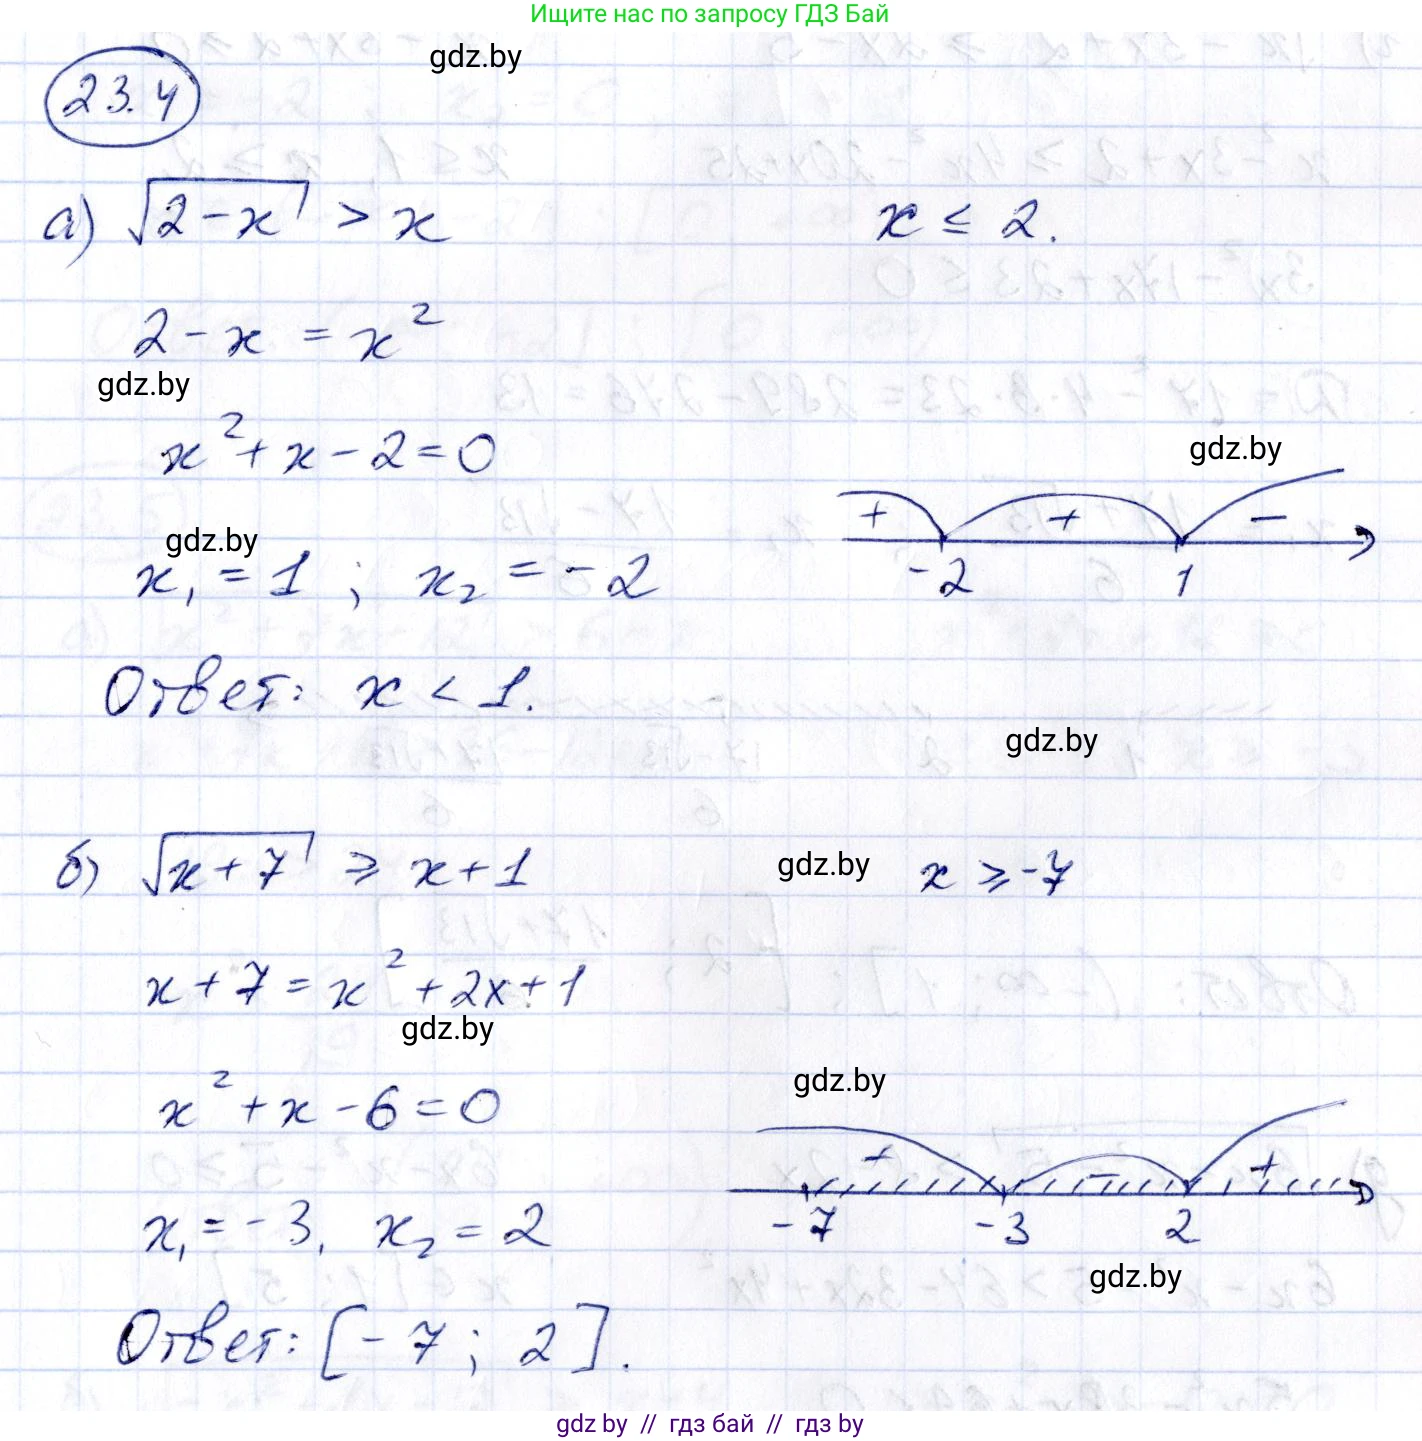 Ищите нас по запросу ГДЗ Бай
gdz.by
23.4
а) √(2-x) > x   x ≤ 2.
2-x = x²
gdz.by
x²+x-2=0
gdz.by
+ + -
gdz.by
-2 1
x₁ = 1 ; x₂ = -2
Ответ: x < 1.
gdz.by
б) √(x+7) ⩾ x+1   gdz.by   x ⩾ -7
x+7 = x²+2x+1
gdz.by
gdz.by
x²+x-6=0
+ - +
-7 -3 2
x₁ = -3, x₂ = 2
gdz.by
Ответ: [-7; 2].
gdz.by // гдз бай // гдз by